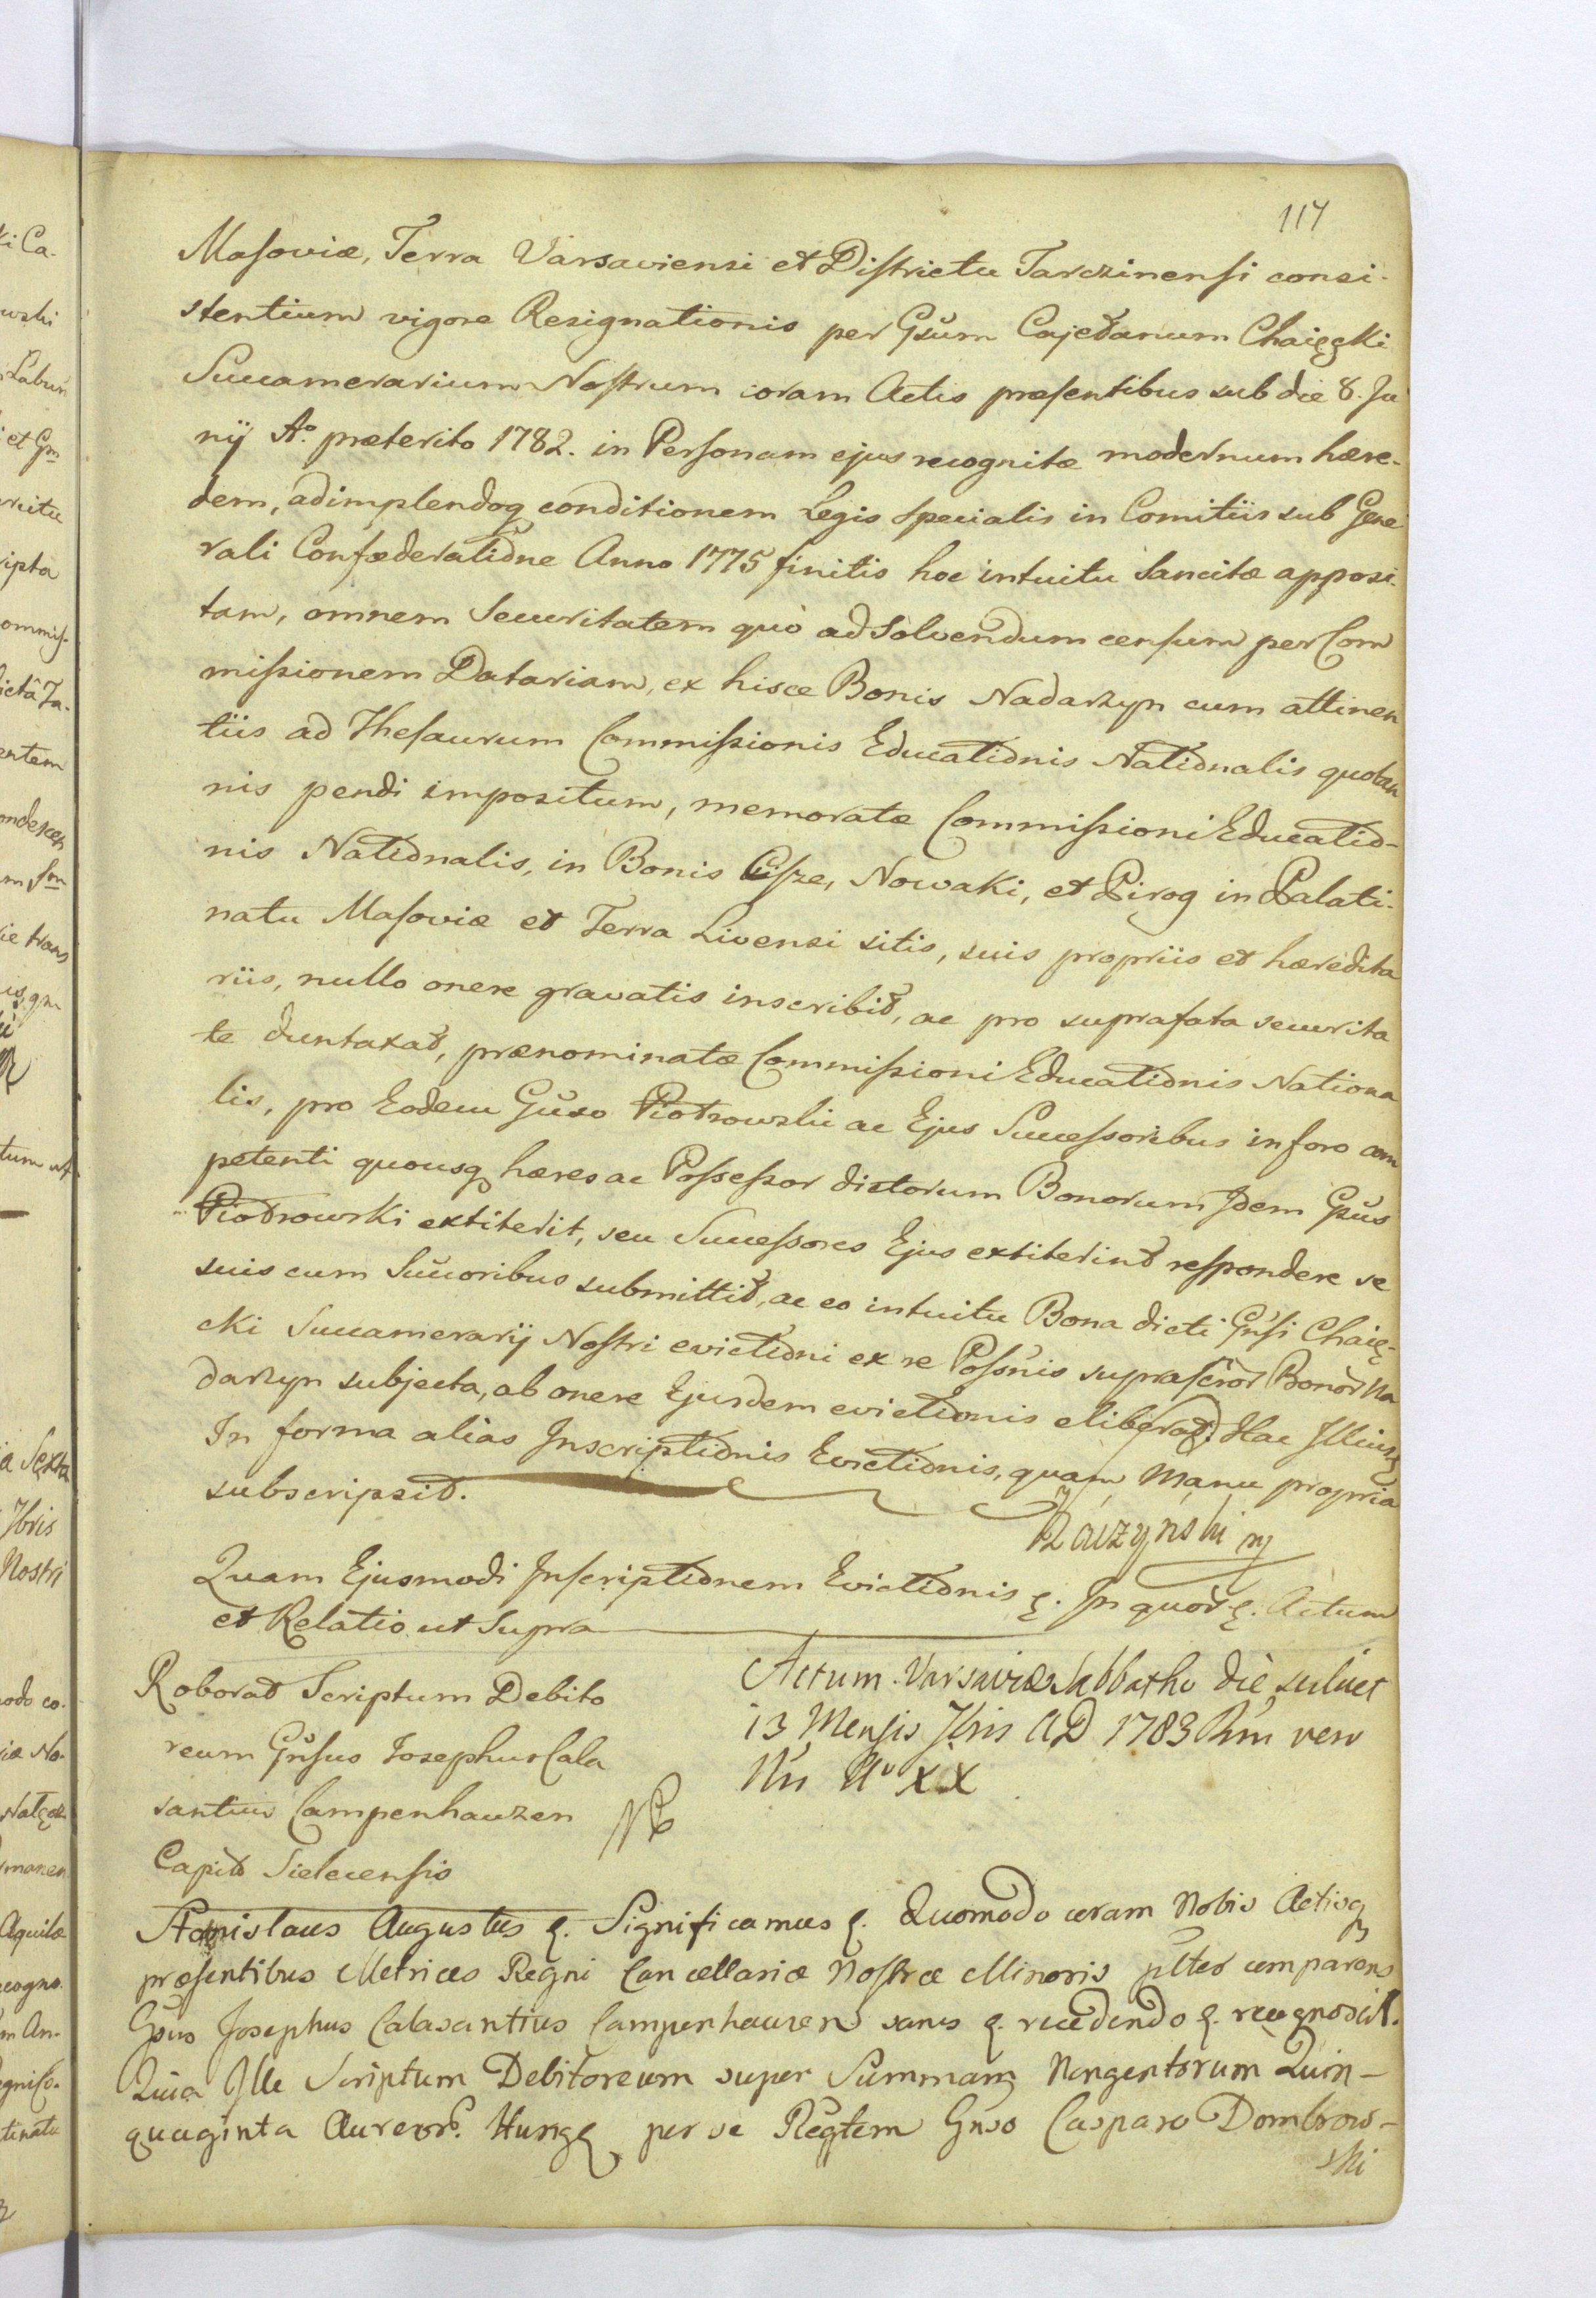 117
Masoviæ, Terra Varsaviensi et Districtu Tarczinensi consi-
stentium vigore Resignationis per Gsum Cajetanum Chaięcki
Succamerarium Nostrum coram Actis præsentibus sub die 8. Ju
nij Aº. præterito 1782. in Personam ejus recognitæ modernum hære-
dem, adimplendoq conditionem Legis specialis in Comitiis sub Gene
rali Confæderatione Anno 1775 finitis hoc intuitu Sancitæ apposi-
tam, omnem Securitatem quò ad Solvendum censum per Com
missionem Datariam, ex hisce Bonis Nadarzyn cum attinen
tiis ad Thesaurum Commissionis Educationis Nationalis quotan
nis pendi impositum, memoratæ Commissioni Educatio-
nis Nationalis, in Bonis Cisze, Nowaki, et Pirog in Palati-
natu Masoviæ et Terra Livensi sitis, suis propriis et hæredita
riis, nullo onere gravatis inscribit, ac pro suprafata securita
te duntaxat, prænominatæ Commissioni Educationis Nationa
lis, pro Eodem Gŭso Piotrowski ac Ejus Successoribus in foro com
petenti quousq hæres ac Possessor dictorum Bonorum Idem Gsus
Piotrowski extiterit, seu Successores Ejus extiterint respondere se
suis cum Succoribus submittit, ac eo intuitu Bona dicti Gnsi Chaię-
cki Succamerarij Nostri evictioni ex re Possnis suprascror Bonor Na
darzyn subjecta, ab onere Ejusdem evictionis eliberat. Hac Illiusq
In forma alias Inscriptionis Evictionis, quam Manu propria
subscripsit.
Raczynski mp
Quam Ejusmodi Inscriptionem Evictionis ę. In quor ę. Actum
et Relatio ut Supra
Roborat Scriptum Debito
reum Gnsus Josephus Cala
santius Campenhauzen
Capit Sielecensis
Actum Varsaviæ Sabbatho die scilicet
13 Mensis 7bris AD 1783 Rni vero
Nri Aº XX
Stanislaus Augustus ę. Significamus ę. Quomodo coram Nobis Actisq
præsentibus Metrices Regni Cancellariæ Nostræ Minoris plter comparens
Gsus Josephus Calasantius Campenhauzen sanus ę. recedendo ę. recognovit.
Quia Ille Scriptum Debitoreum super Summam Nongentorum Quin-
quaginta Aureor. Hungę per se Rēgtem Gnso Casparo Dombrow-
ski